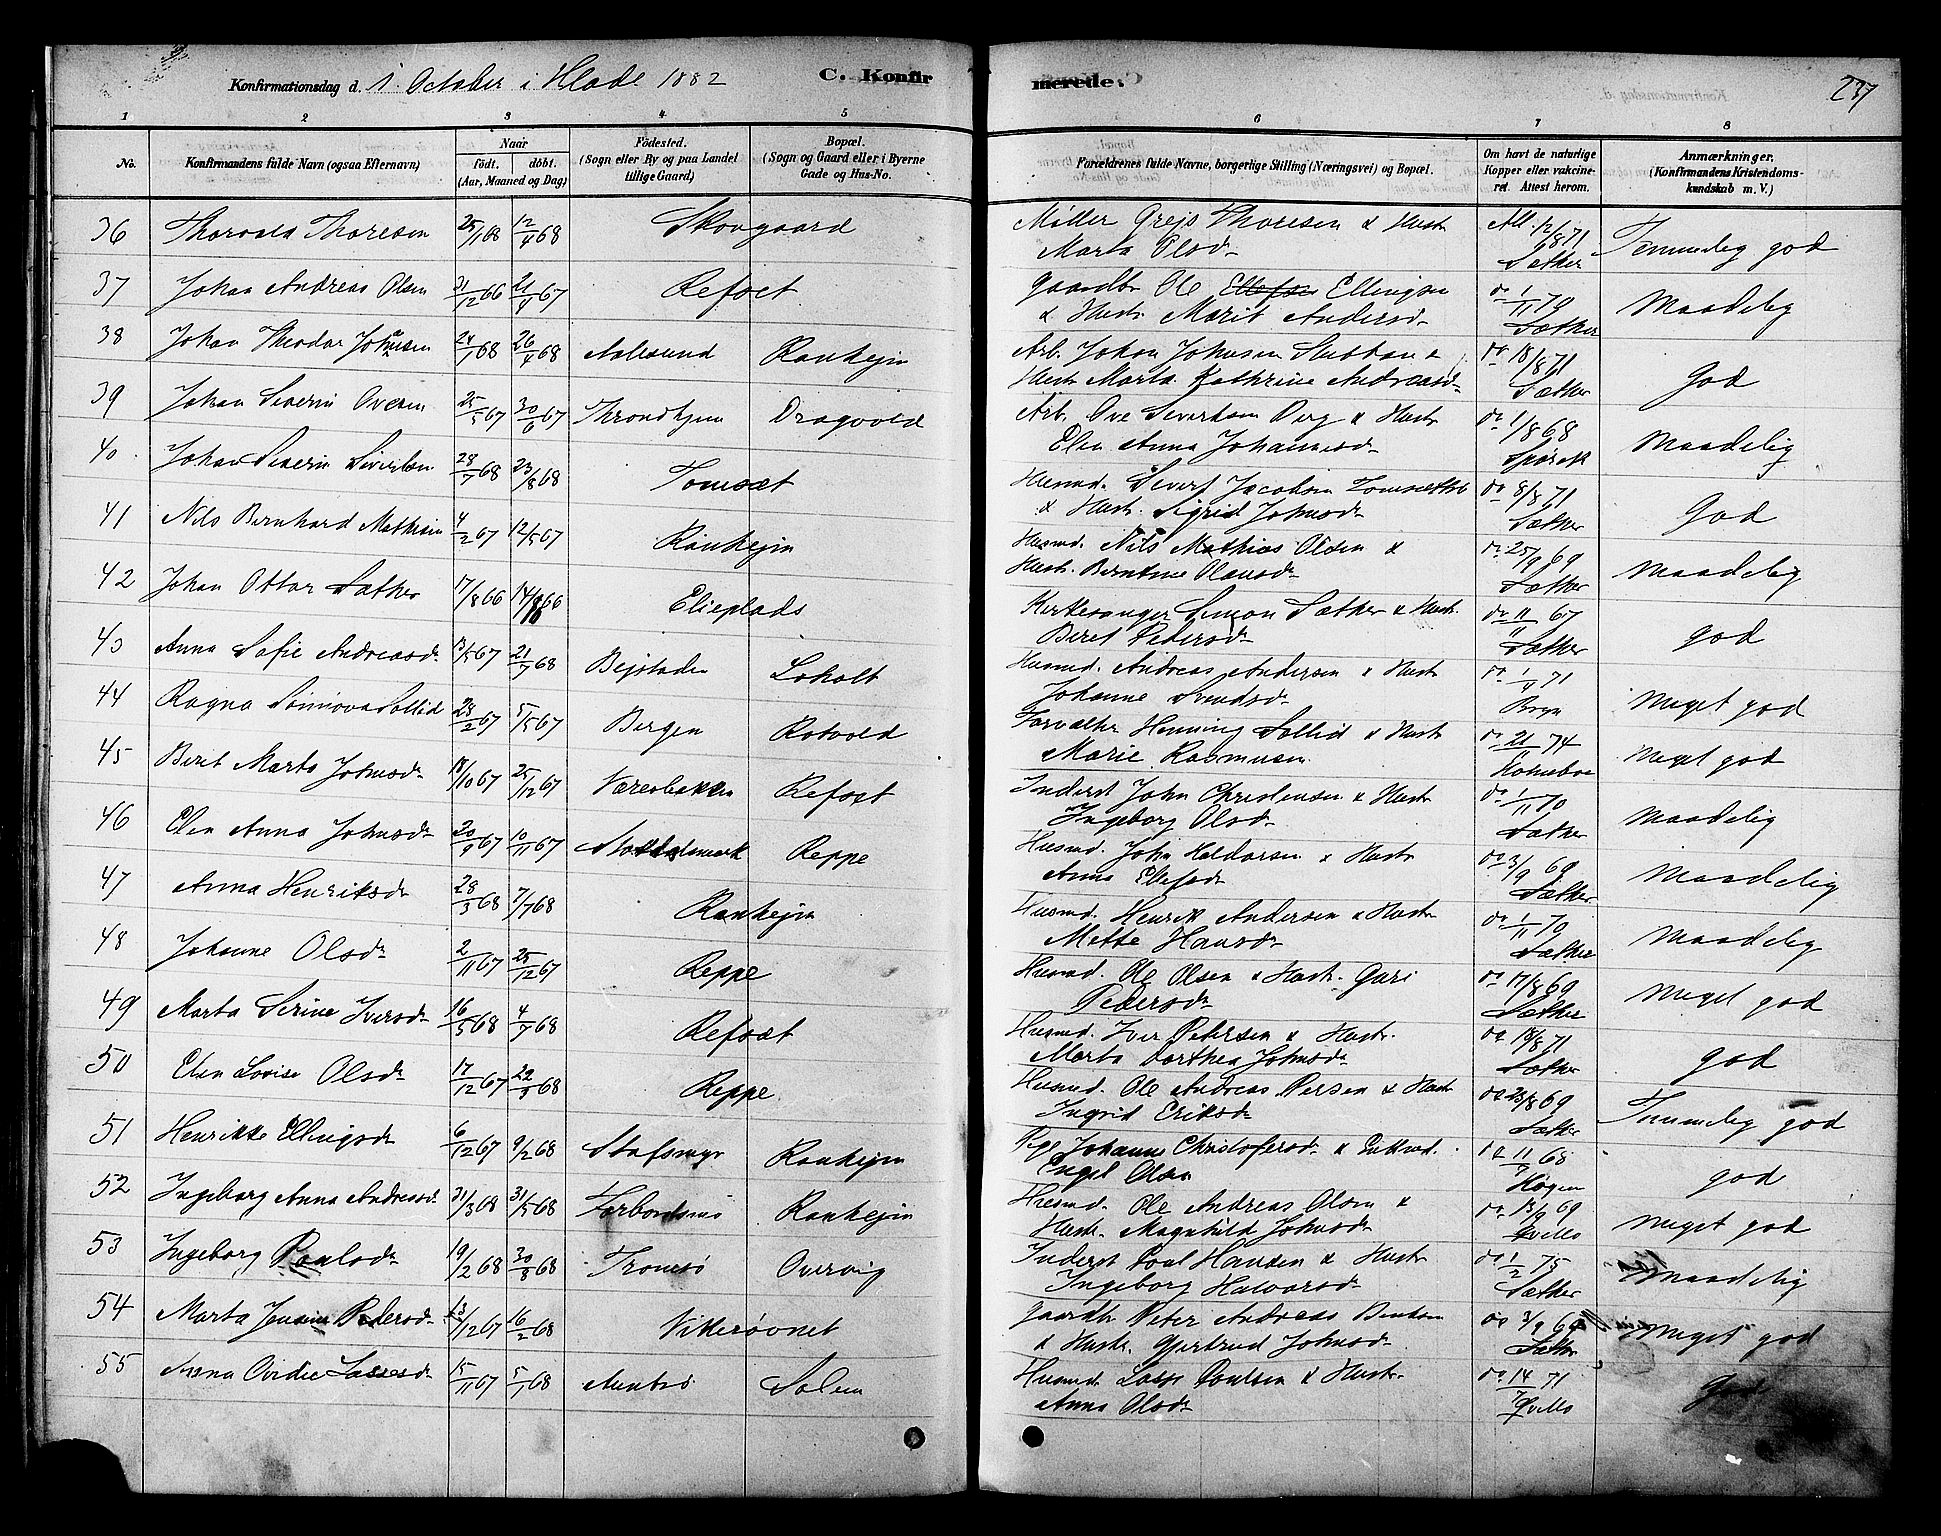 Konfirmationsdag d. 1. October i Hlade 1882
C. Konfirmerede.
237
1 2 3 4 5 6 7 8
No.
Konfirmandens fulde Navn (ogsaa Efternavn)
Naar
født. døbt.
(Aar, Maaned og Dag)
Födested.
(Sogn eller By og paa Landet
tillige Gaard.)
Bopæl.
(Sogn og Gaard eller i Byerne
Gade og Hus-No.
Forældrenes fulde Navne, borgerlige Stilling (Næringsvei) og Bopæl.
Om havt de naturlige
Kopper eller vakcine-
ret. Attest herom.
Anmærkninger.
(Konfirmandens Kristendoms-
kundskab m. V.)
36 Thorvald Thoresen 25/1 68 12/4 68 Skovgaard Møller Grejs Thoresen & Hust. Att. 12/8 71 Temmelig god
Marta Olsd. Sæther
37 Johan Andreas Olsen 31/12 66 21/4 67 Refset Gaardbr. Ole Ellefsen Ellingsen do 1/11 70 Maadelig
& Hustr. Marit Andersd. Sæther
38 Johan Theodor Johnsen 24/1 68 26/4 68 Aalesund Ranhejm Arb. Johan Johnsen & do 18/8 71 God
Hustr. Marta Kathrine Andreasd. Sæther
39 Johan Severin Ovesen 25/5 67 30/6 67 Throndhjem Dragvold Arb. Ove Sivertsen Berg & Hustr. do 1/8 68 Maadelig
Elen Anna Johannesd.
40 Johan Severin Sivertsen 28/7 68 23/8 68 Tomset Husmd. Sivert Jacobsen do 8/8 71 God
& Hustr. Sigrid Johnsd. Sæther
41 Nils Bernhard Mathisen 4/2 67 12/5 67 Ranhejm Husmd. Nils Mathias Olsen & do 25/9 69 Maadelig
Hustr. Berntine Olausd. Sæther
42 Johan Ottar Sæther 17/8 66 14/ 66 Elieplads Kirkesanger Simon Sæther & Hustr. do 11/11 67 god
Beret Pedersd. Sæther
43 Anna Sofie Andreasd. 13/5 67 21/7 68 Bejstaden Loholt Husmd. Andreas Andersen & Hustr. do 1/9 71 Meget god
Johanne Svendsd.
44 Ragna Sønnøva Sollid 23/2 67 5/5 67 Bergen Rotvold Forvalter Henning Sollid & Hustr. do 74 Meget god
Marie Rasmusen
45 Berit Marta Johnsd. 18/10 67 25/12 67 Væresbakken Refset Inderst John Christensen & Hustr. do 1/11 70 Maadelig
Ingeborg Olsd. Sæther
46 Elen Anna Johnsd. 20/9 67 10/11 67 Reppe Husmd. John Haldorsen & Hustr. do 3/9 69 Maadelig
Anna Ellefsd. Sæther
47 Anna Henriksd. 28/3 68 7/7 68 Ranhejm Husmd. Henrik Andersen & Hustr. do 1/11 70 Maadelig
Mette Hansd. Sæther
48 Johanne Olsd. 2/11 67 25/12 67 Reppe Husmd. Ole Olsen & Hustr. Guri do 17/8 69 Meget god
Pedersd. Sæther
49 Marta Serine Iversd. 16/5 68 4/7 68 Refset Husmd. Iver Petersen & Hustr. do 18/8 71 god
Marta Dorthea Johnsd. Sæther
50 Elen Lovise Olsd. 17/12 67 22/3 68 Reppe Husmd. Ole Andreas Persen & Hustr. do 23/8 69 Temmelig god
Ingrid Eriksd. Sæther
51 Henrikke Ellingsd. 6/12 67 9/2 68 Ranhejm Pige Johanne Christofersd. & do 11/7 68 god
Engel Olsen
52 Ingeborg Anna Andreasd. 31/3 68 31/5 68 Ranhejm Husmd. Ole Andreas Olsen & do 13/9 69 Meget god
Hustr. Magnhild Johnsd. Qvello
53 Ingeborg Paulsd. 19/2 68 30/8 68 Tromsø Overvig Inderst Poul Hansen & Hustr. do 1/2 75 Maadelig
Ingeborg Halvorsd. Sæther
54 Marta Jensine Pedersd. 13/12 67 16/2 68 Vikkerøvnet Gaardbr. Peter Andreas Bentsen do 3/9 69 Meget god
& Hustr. Gjertrud Johnsd. Sæther
55 Anna Ovidie Lassesd. 15/11 67 5/1 68 Solem Husmd. Lasse Poulsen & Hustr. do 14/7 71 God
Anna Olsd. Qvello